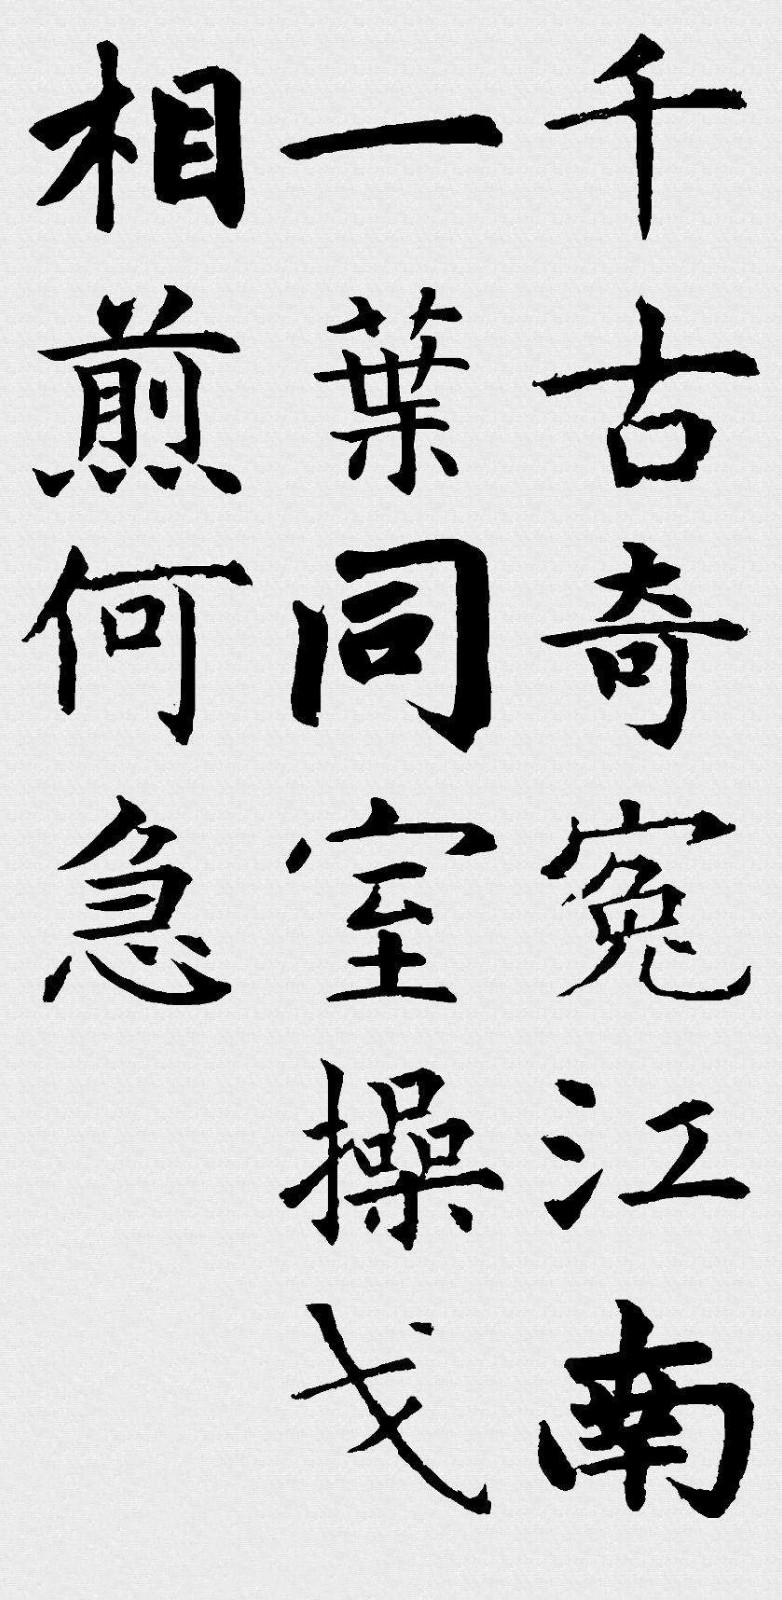 千古奇冤江南
一葉同室操戈
相煎何急